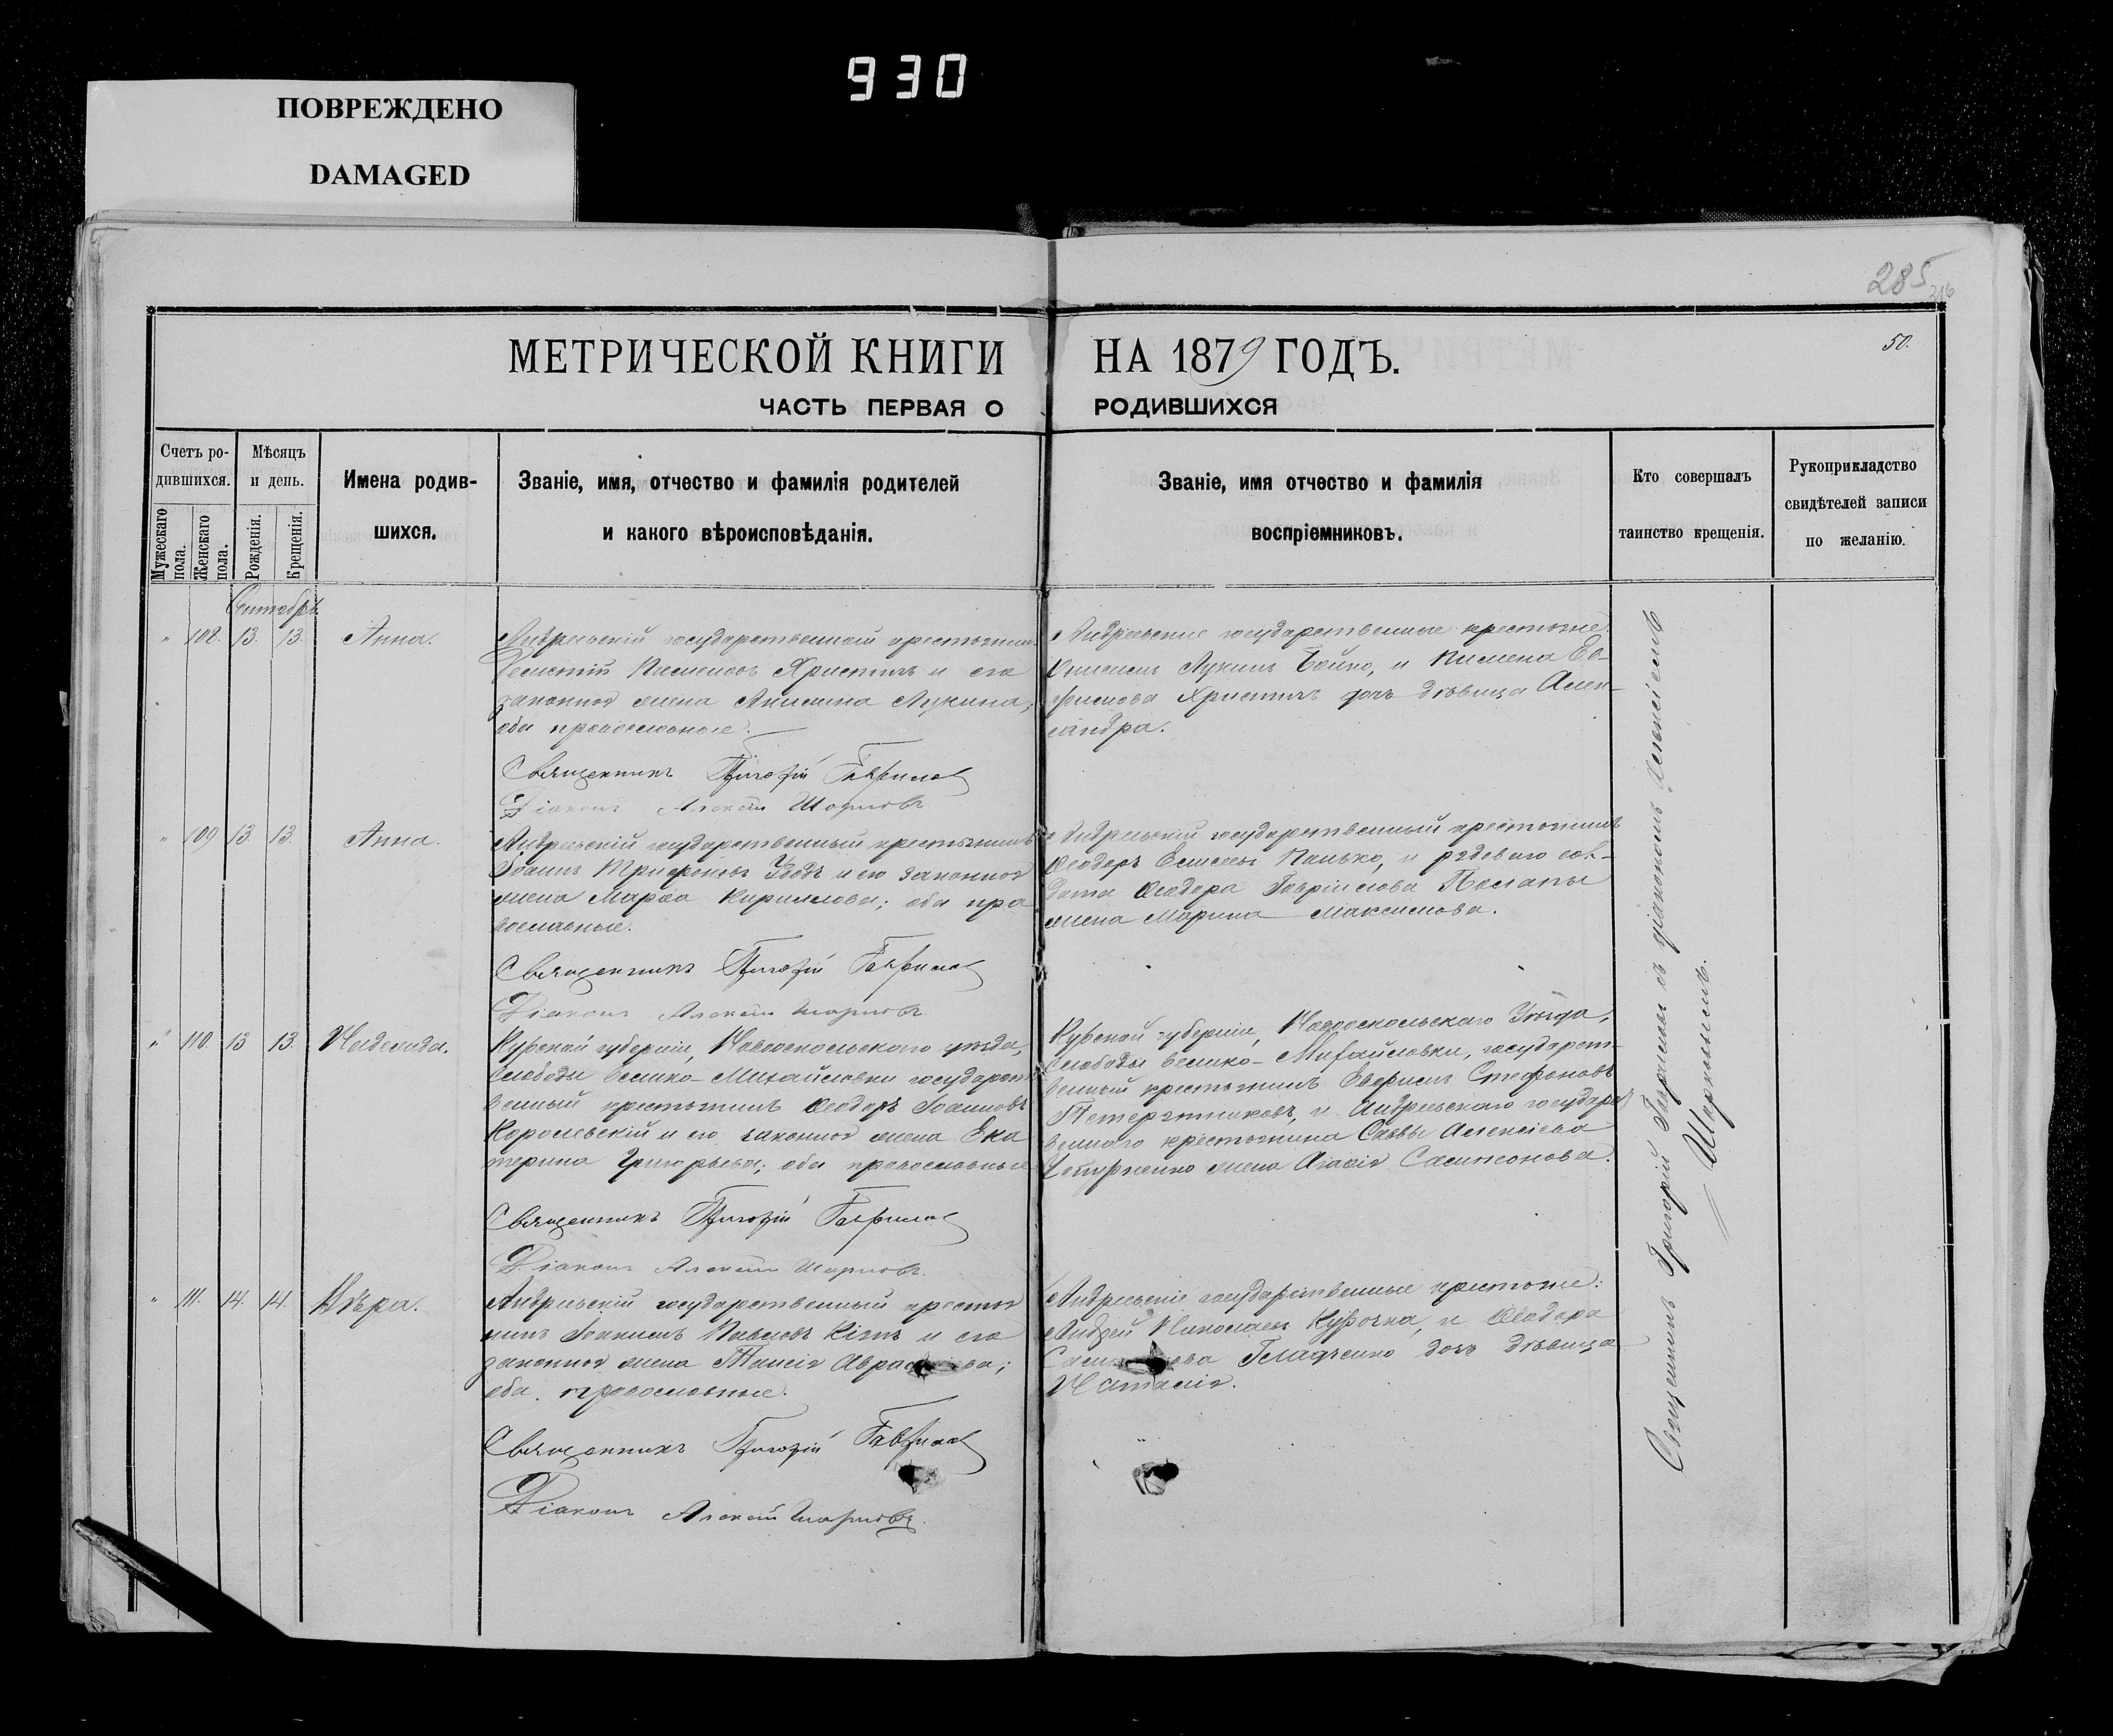 930
ПОВРЕЖДЕНО
DAMAGED
285
316
50.
МЕТРИЧЕСКОЙ КНИГИ НА 1879 ГОДЪ.
ЧАСТЬ ПЕРВАЯ О РОДИВШИХСЯ
Счетъ ро-
дившихся.
Мужескаго пола.
Женскаго пола.
Мѣсяцъ
и день.
Рожденія.
Крещенія.
Имена родив-
шихся.
Званіе, имя, отчество и фамилія родителей
и какого вѣроисповѣданія.
Званіе, имя отчество и фамилія
воспріемниковъ.
Кто совершалъ
таинство крещенія.
Рукоприкладство
свидѣтелей записи
по желанію.
Сентябрь
" 108. 13. 13. Анна.
Андреевскій государственный крестьянинъ
Пименовъ Христичъ и его
законная жена Акилина Лукина;
оба православные.
Священникъ Григорій Гаврилов
Діаконъ Алексѣй Шарповъ
Андреевские государственные крестьяне:
Лукинъ Бойко, и Пимена Ев-
фимова Христичъ дочь дѣвица Алек-
сандра.
" 109 13. 13. Анна.
Андреевскій государственный крестьянинъ
Іоаннъ Трифоновъ и его законная
жена Марѳа Кириллова; оба пра
вославные.
Священникъ Григорій Гаврилов
Діаконъ Алексѣй Шарповъ.
Андреевскій государственный крестьянинъ
Ѳеодоръ Панько, и рядового сол-
дата Ѳеодора Гавріилова
жена Марина Максимова.
" 110. 13 13. Надежда.
Курской губерніи, Новооскольскаго уѣзда,
слободы Велико-Михайловки государст
венный крестьянинъ Ѳеодоръ Іоанновъ
Королевскій и его законная жена Ека
терина Григорьева; оба православные
Священникъ Григорій Гаврилов
Діаконъ Алексѣй Шарповъ.
Курской губерніи, Новооскольскаго Уѣзда,
слободы Велико-Михайловки, государст-
венный крестьянинъ Евфимъ Стефановъ
и Андреевскаго государст
веннаго крестьянина Саввы Алексіева
жена Агаѳія Самсонова.
" 111. 14. 14. Вѣра.
Андреевскій государственный крестья
нинъ Іоакимъ Павловъ и его
законная жена Таисія
оба православные.
Священникъ Григорій Гаврилов
Діаконъ Алексѣй Шарповъ.
Андреевскіе государственные крестьяне:
Андрей Николаевъ Курочка, и Ѳеодора
Гладченко дочь дѣвица
Наталія.
Священникъ Григорій Гавриловъ съ діакономъ Алексіемъ
Шарповымъ.